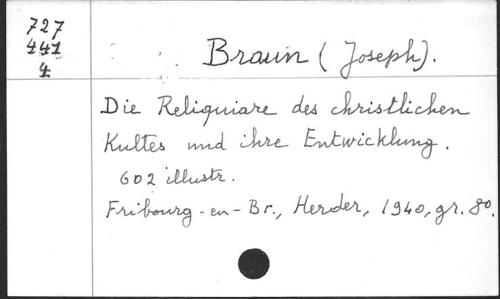 727
441
4
Braun (Joseph).
Die Reliquiare des christlichen
Kultes und ihre Entwicklung.
602 illustr.
Fribourg-en-Br., Herder, 1940, gr. 8o.